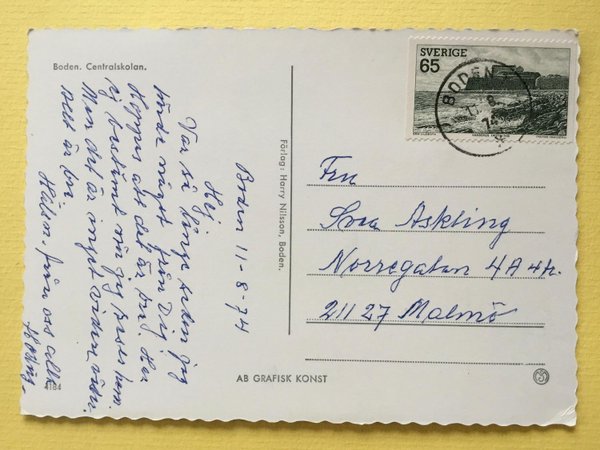 Boden. Centralskolan.
Boden 11-8-74
Hej
Var så länge sedan jag
hörde något från Dig
Hoppas att det är bra. Her
ej bestämt när jag reser hem
Men det är inget vidare väder.
Allt är bra
Hälsn. från oss alla
4184
Förlag: Harry Nilsson, Boden.
AB GRAFISK KONST
SVERIGE
65
BODEN
11 8
74
Fru
Svea Askling
Norregatan 4A 4tr.
21127 Malmö